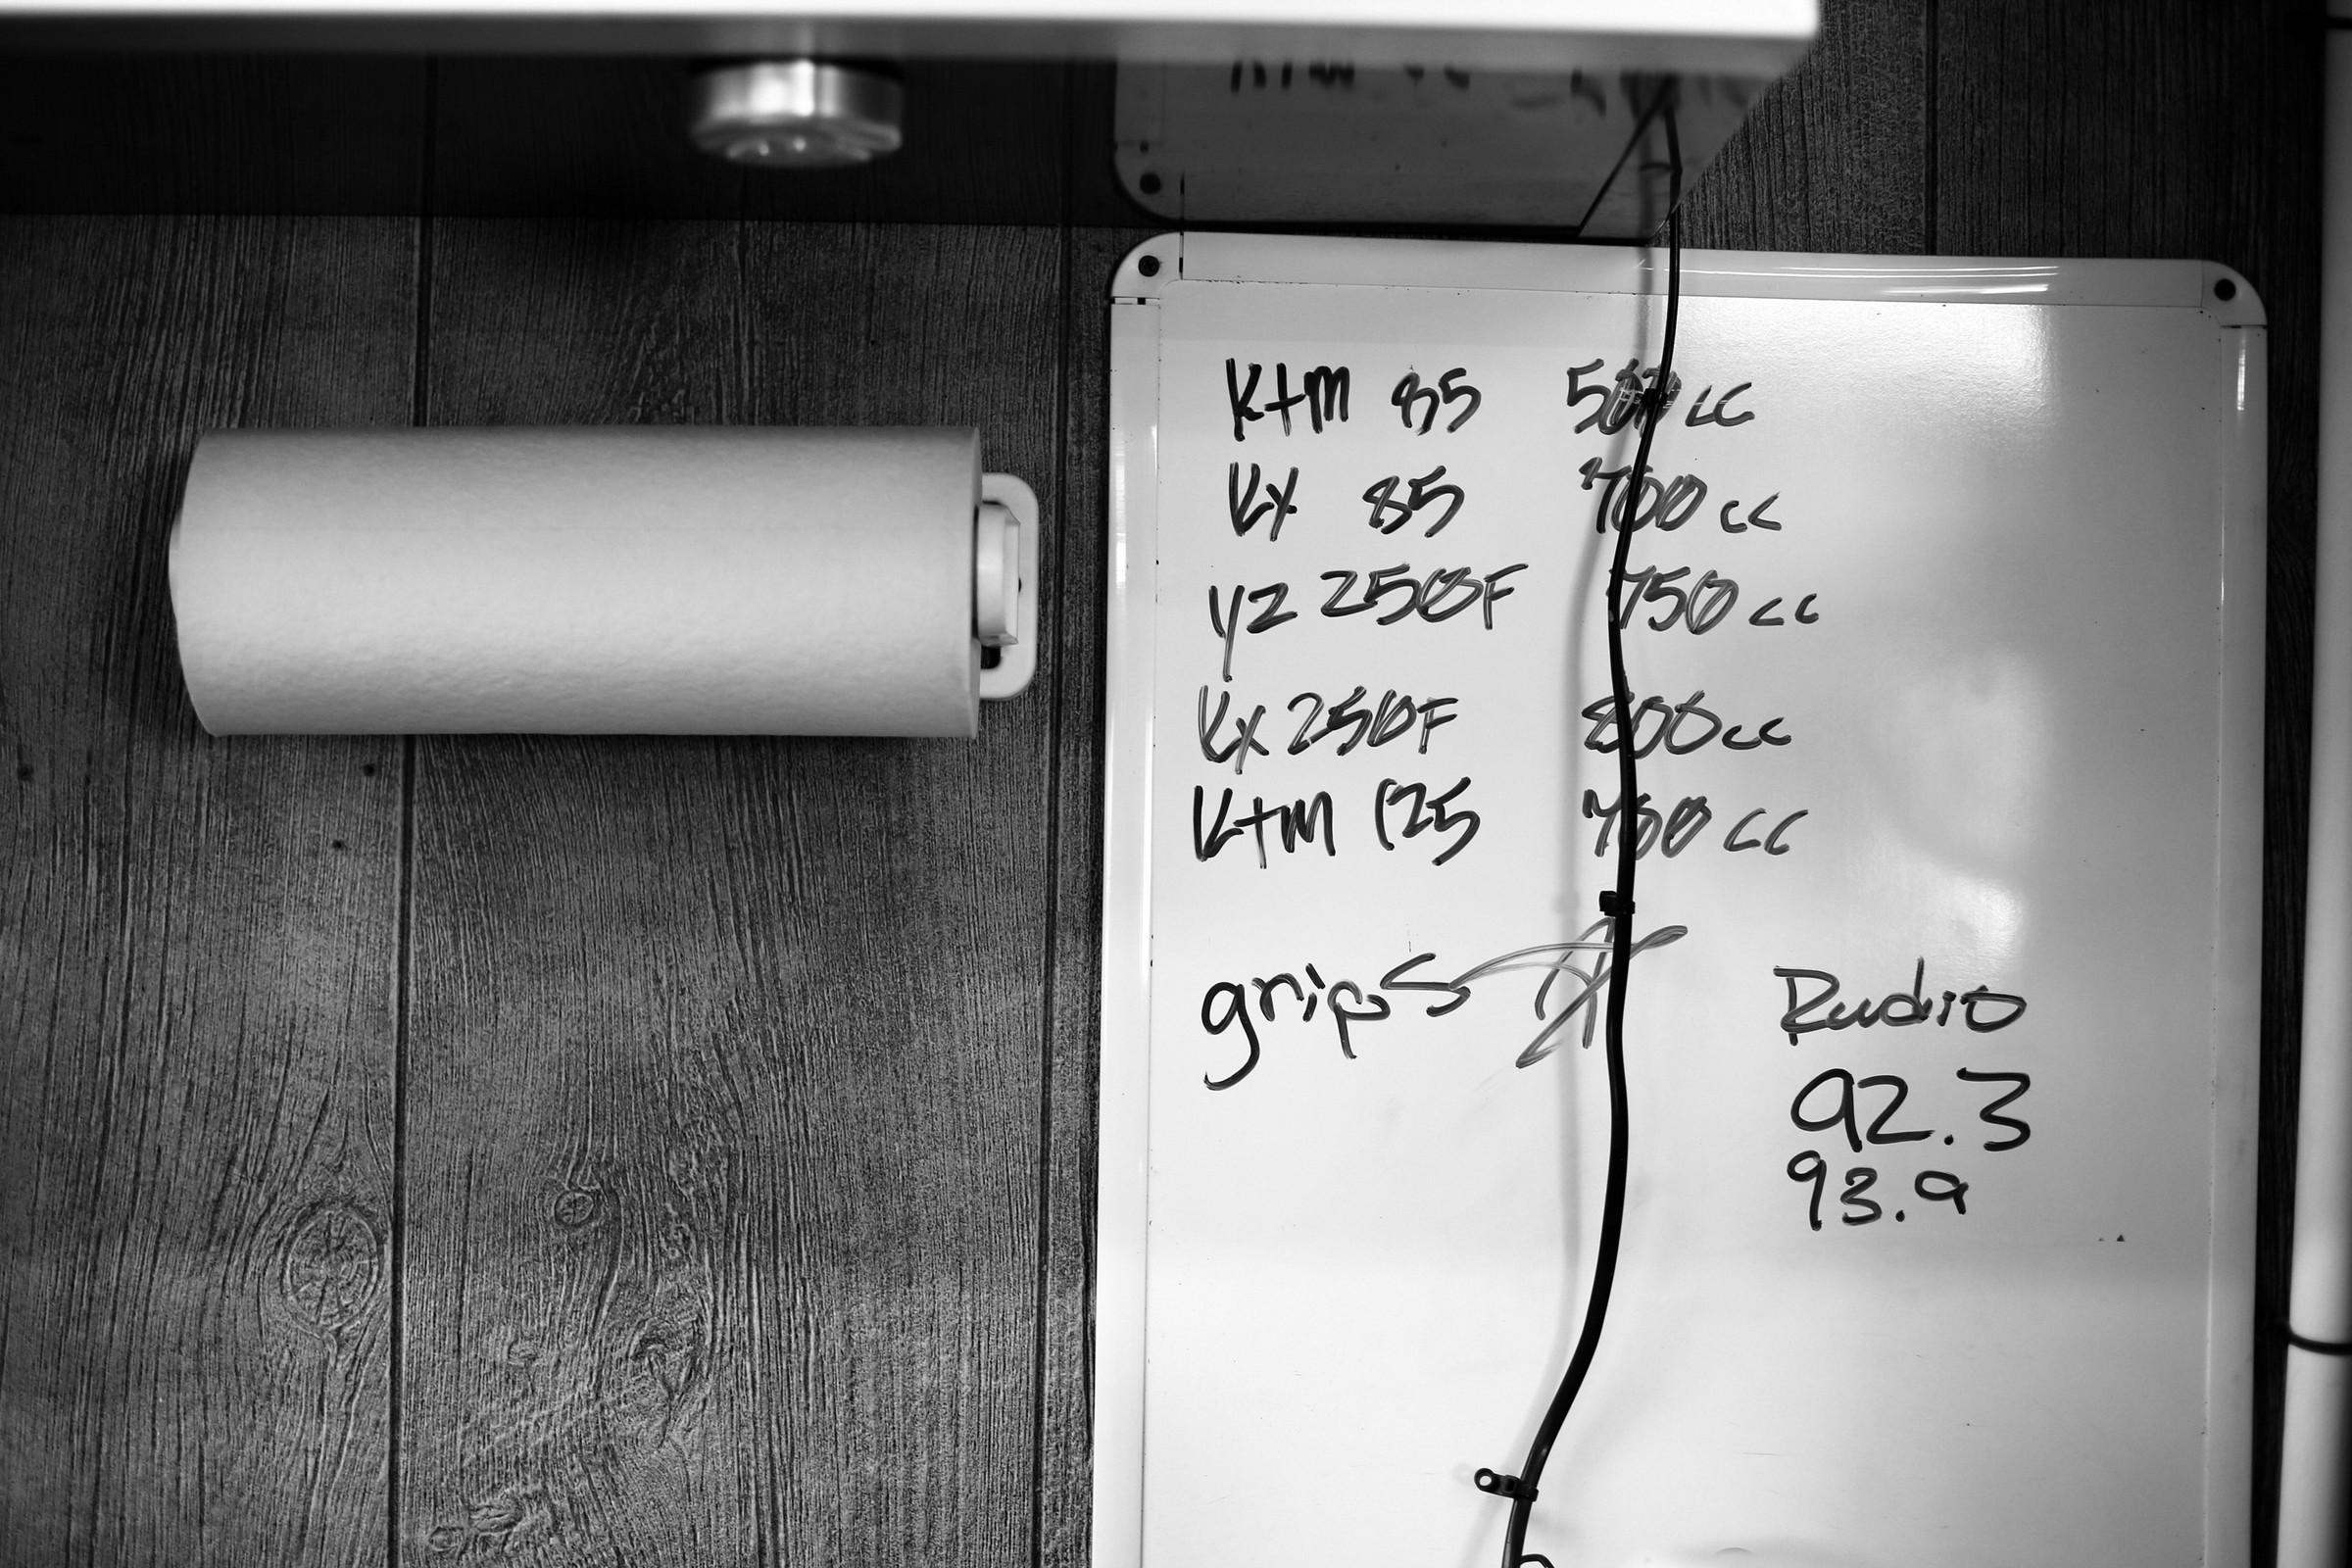 Ktm 85 500cc
Kx 85 700cc
YZ 250F 750cc
Kx 250F 800cc
Ktm 125 700cc
grips
Radio
92.3
93.9